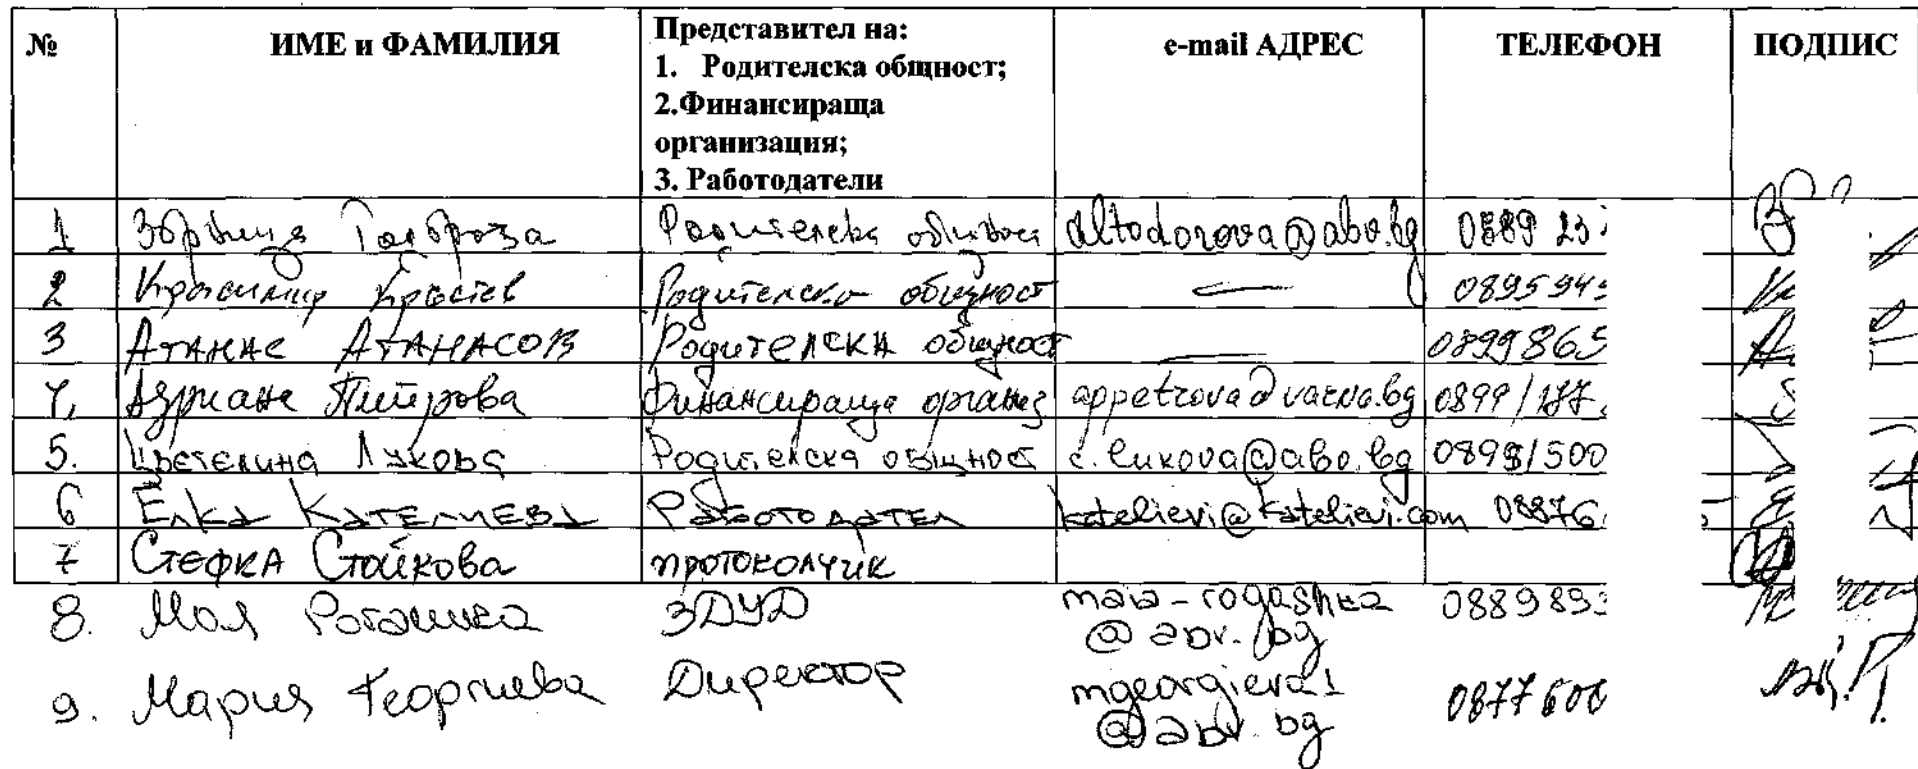 № ИМЕ и ФАМИЛИЯ Представител на: e-mail АДРЕС ТЕЛЕФОН ПОДПИС
1. Родителска общност;
2.Финансираща
организация;
3. Работодатели
1 Родителска общност altodorova@abv.bg 0889 23
2 Красимир Кръстев Родителска общност — 0895945
3 АТАНАС АТАНАСОВ Родителска общност — 0899865
4. Адриана Петрова Финансираща организ appetrova@varna.bg 0899/177
5. Цветелина Лукова Родителска общност c.lukova@abv.bg 0898/500
6 Елка Кателиева Работодател katelievi@katelievi.com 08876
7 Стефка Стойкова протоколчик
8. Мая Рогашка ЗДУД maia-rogashka 0889893
@abv.bg
9. Мария Георгиева Директор mgeorgieva1 0877600
@abv.bg